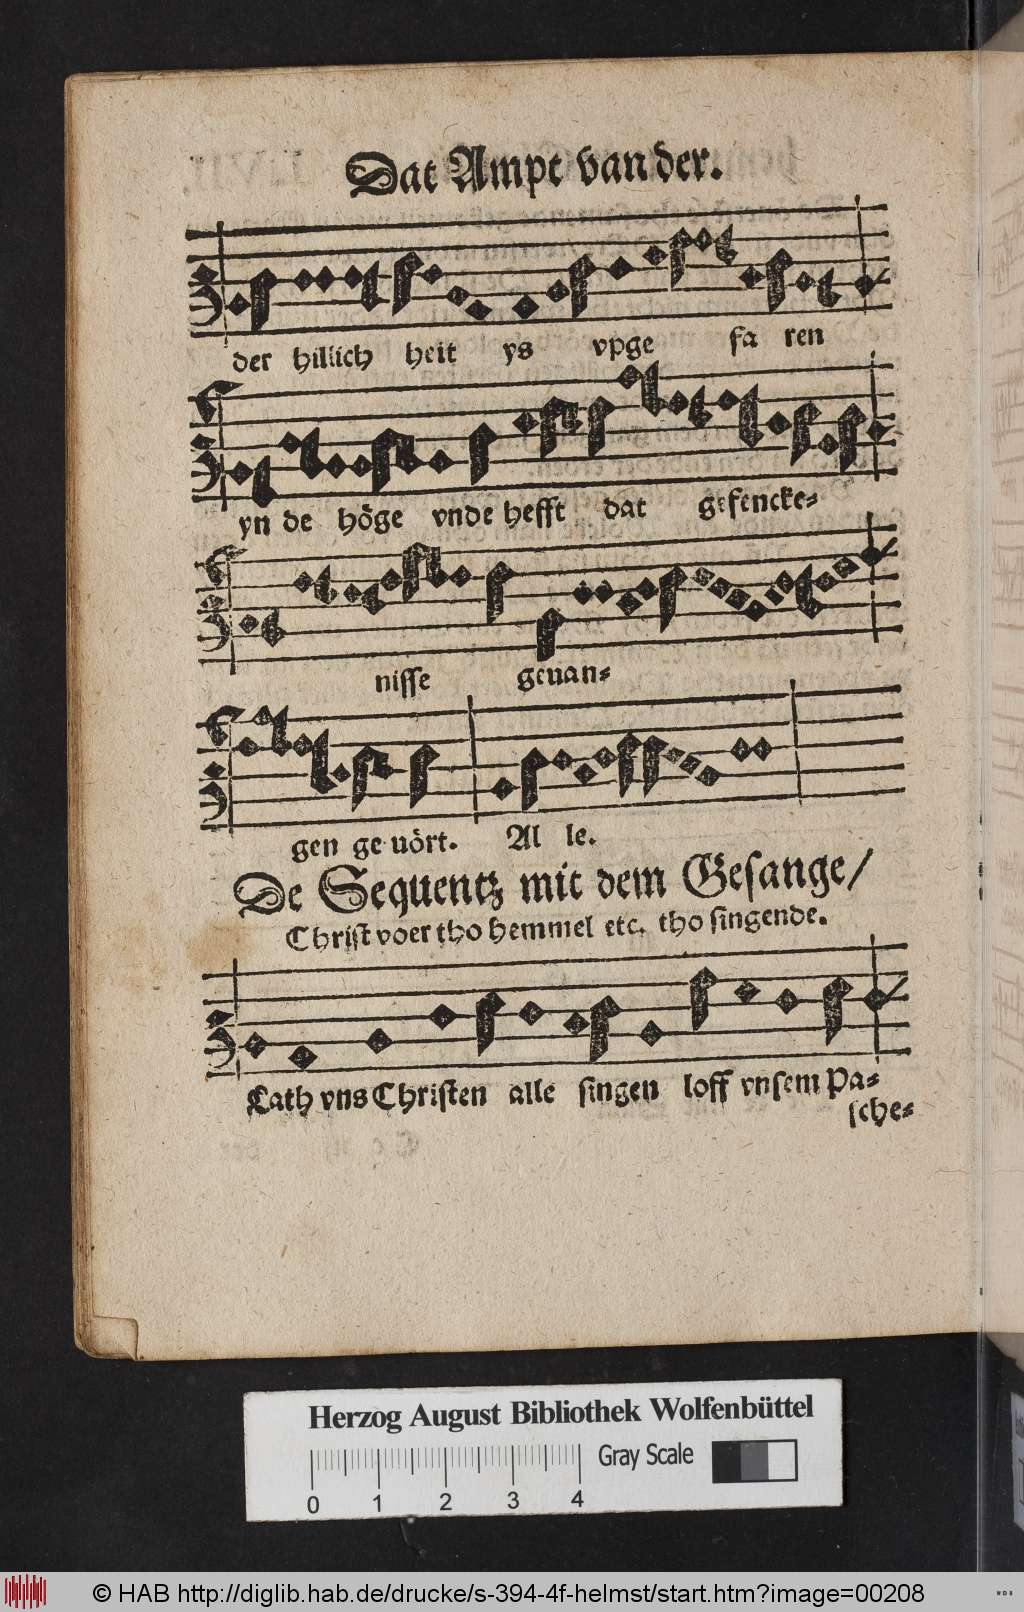 Dat Ampt van der.
der hillich heit ys vpge fa ren
yn de höge vnde hefft dat gefencke-
nisse geuan-
gen ge uört. Al le.
De Sequentz mit dem Gesange/
Christ voer tho hemmel etc. tho singende.
Lath vns Christen alle singen loff vnsem Pa-
sche-
Herzog August Bibliothek Wolfenbüttel
Gray Scale
0 1 2 3 4
© HAB http://diglib.hab.de/drucke/s-394-4f-helmst/start.htm?image=00208